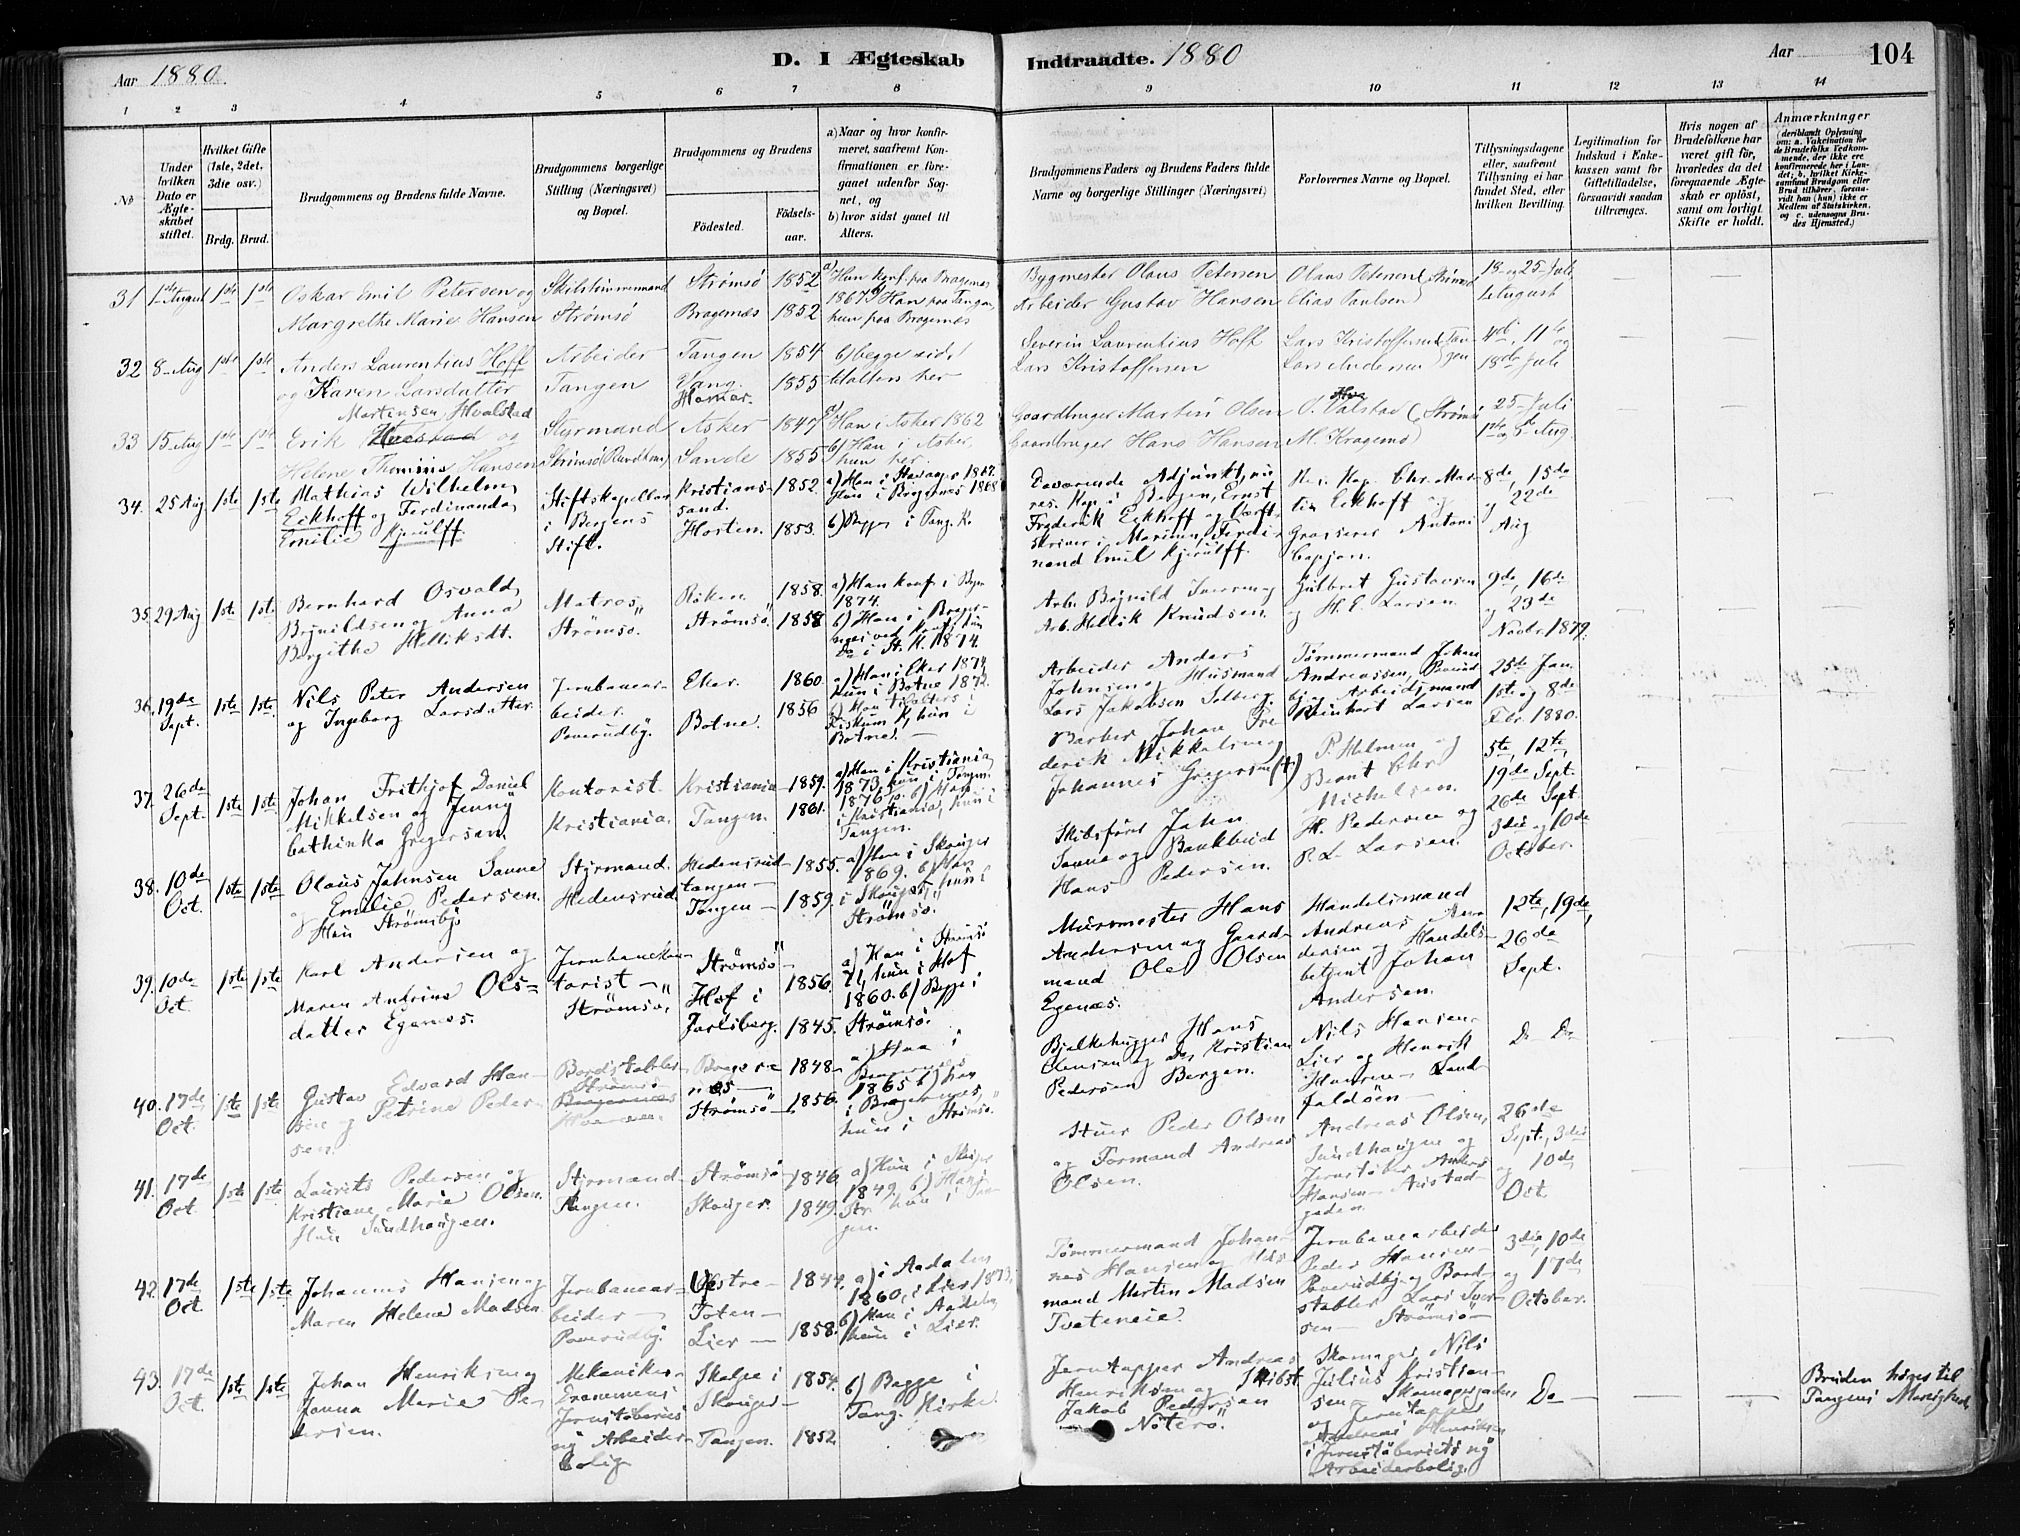 Aar 1880.
D. I Ægteskab
Indtraadte. 1880
Aar
104
1 2 3 4 5 6 7 8 9 10 11 12 13 14
No
Under hvilken Dato er Ægteskabet stiftet.
Hvilket Gifte (1ste, 2det. 3die osv.)
Brdg. Brud.
Brudgommens og Brudens fulde Navne.
Brudgommens borgerlige Stilling (Næringsvei) og Bopæl.
Brudgommens og Brudens
Fødested.
Fødselsaar.
a) Naar og hvor konfirmeret, saafremt Konfirmationen er foregaaet udenfor Sognet, og
b) hvor sidst gaaet til Alters.
Brudgommens Faders og Brudens Faders fulde Navne og borgerlige Stillinger (Næringsvei)
Forlovernes Navne og Bopæl.
Tillysningsdagene eller, saafremt Tillysning ei har fundet Sted, efter hvilken Bevilling.
Legitimation for Indskud i Enkekassen samt for Giftetilladelse, forsaavidt saadan tiltrænges.
Hvis nogen af Brudefolkene har været gift før, hvorledes da det foregaaende Ægteskab er opløst, samt om lovligt Skifte er holdt.
Anmærkninger
(deriblandt Oplysning om: a. Vakcination for de Brudefolks Vedkommende, der ikke ere konfirmerede her i Landet; b. hvilket Kirkesamfund Brudgom eller Brud tilhører, forsaavidt han (hun) ikke er Medlem af Statskirken, og c. udensogns Brudes Hjemsted.)
31 1ste August 1ste 1ste
Oskar Emil Petersen og
Margrethe Marie Hansen
Strømsø
Strømsø 1852
Bragernæs 1852
a) Hun konf. paa Bragernæs
1867 b) Han paa Tangen,
hun paa Bragernæs
Bygmester Olaus Petersen
Arbeider Gustav Hansen
Olaus Petersen
Elias Paulsen
18 og 25 Juli
1 August
32 8 Aug 1ste 1ste
Anders Laurentius Hoff
og Karen Larsdatter
Arbeider
Tangen
Tangen 1854
Vang 1855
Hamar.
b) begge sidst
Severin Laurentius Hoff
Lars Kristoffersen
Lars Kristoffersen
4de, 11te og
18de Juli
33 15 Aug 1ste 1ste
Martinsen Hvalstad
Erik og
Helene Thomine Hansen
Styrmand
Asker 1847
Sande 1855
a) Han i Asker 1862
b) Han i Asker,
hun her.
Gaardbruger Martin Olsen
Gaardbruger Hans Hansen
O. Valstad
M. Kragemo
25 Juli
1ste og 8de Aug
34. 25 Aug 1ste 1ste
Mathias Wilhelm
Eckhoff og Ferdinanda
Emilie Kjerulff.
Stiftskapellan
i Bergens
Stift.
Kristianssand. 1852.
Horten. 1853.
a) Han i Stavanger 1867.
Hun i Bragernes 1868
b) Begge i Tang. K.
Daværende Adjunkt, nu
res. Kap. i Bergen, Ernst
Frederik Eckhoff og
skriver i Marinen, Ferdinand
Emil Kjerulff.
Res. Kap. Chr. Martin
Eckhoff og
Grosserer Antoni
8de, 15de
og 22de
Aug
35. 29 Aug 1ste 1ste
Bernhard Osvald
Brynildsen og Anna
Birgithe Helliksdt.
Matros
Strømsø.
Røken 1858.
Strømsø. 1858
a) Han konf. i
1874.
i St. K. 1874.
Arb. Brynild Iversen og
Arb. Hellik Knudsen.
Gulbret Gustavsen
og H. E. Larsen.
9de, 16de
og 23de
Novbr. 1879.
36. 19de Sept. 1ste 1ste
Nils Peter Andersen
og Ingeborg Larsdatter.
Jernbanearbeider.
Poverudby.
Eker. 1860.
Botne. 1856
a) Han i Eker 1874,
hun i Botne 1872.
Fiskum K, hun i
Botne.
Arbeider Anders
Johnsen og Husmand
Lars Jakobsen Solberg.
Tømmermand Johan
Andreassen, Poverudby
og Arbeidsmand
Reinhart Larsen
25de Jan.
1ste og 8de
Febr. 1880.
37. 26de Sept. 1ste 1ste
Johan Frithjof Daniel
Mikkelsen og Jenny
Cathinka Gregersen.
Kontorist.
Kristiania.
Kristiania 1859.
Tangen. 1861.
a) Han i Kristiania
1873, hun i Tangen
1876. b) Han
i Kristiania, hun i
Tangen.
Barber Johan Frederik
Mikkelsen og
Johannes Gregersen (†)
P. Helmen og
Bernt Chr.
Michelsen.
5te, 12te,
19de Sept.
38. 10de Oct. 1ste 1ste
Olaus Johnsen Sanne
og Emilie Pedersen.
Hun Strømsby
Styrmand.
Hedensrud.
Hedensrudtangen 1855.
Tangen 1859.
a) Han i Skouger
1869. b) Han
i Skouger, hun i
Strømsø.
Skibsfører John
Sanne og Bankbud
Hans Pedersen.
H. Pedersen og
P. L. Larsen.
26de Sept
3die og 10de
October.
39. 10de Oct. 1ste 1ste
Karl Andersen og
Maren Andrine Olsdatter
Egenæs.
Jernbanekontorist
Strømsø.
Strømsø 1856.
Hof i
Jarlsberg. 1845.
a) Han i Strømsø
71, hun i Hof
1860. b) Begge i
Strømsø.
Murmester Hans
Andersen og Gaardmand
Ole Olsen
Egenæs.
Handelsmand
Andreas Andersen
og Handelsbetjent
Johan
Andersen.
12te, 19de,
26de
Sept.
40. 17de Oct. 1ste 1ste
Gustav Edvard Hansen
og Petrine Pedersen
Bordstabler
Strømsø
Bragernes 1848
Strømsø 1856.
a) Han i
Bragernes
1865 b) Han
i Bragernes,
hun i Strømsø.
Bjelkehugger Hans
Olausen og Do Kristian
Pedersen Bergan.
Nils Hansen
Lier og Henrik
Hansen
Do Do
41. 17de Oct. 1ste 1ste
Laurits Pedersen og
Kristiane Marie Olsen.
Hun Sundhaugen.
Styrmand
Tangen.
Strømsø 1846.
Skouger 1849.
a) Hun i Skouger
b) Han i
Str hun i Tangen.
Stuer Peder Olsen
og Formand Andreas
Olsen.
Andreas Olsen,
Sundhaugene og
Jernstøber Anders
Hansen
26de
Sept., 3die
og 10de
Oct.
42. 17de Oct 1ste 1ste
Johannes Hansen og
Maren Helene Madsen
Jernbanearbeider
Poverudby.
Vestre
Toten 1847.
Lier 1858.
a) i Aadalen
1860, i Lier 1873,
b) Han i Aadalen,
hun i Lier.
Tømmermand Johannes
Hansen og Husmand
Martin Madsen
Tveteneie.
Jernbanearbeider
Peder Hansen
Poverudby og Bordstabler
Lars Iversen
Strømsø
3die, 10de
og 17de
October.
43. 17de Oct 1ste 1ste
Johan Henriksen og
Janna Marie Pedersen.
Mekaniker
Jernstøberiets
ny Arbeiderbolig
Skalpe i
Skouger 1854.
Tangen. 1852
b) Begge i
Tang. Kirke.
Jerntapper Andreas
Henriksen og Skibst.
Jakob Pedersen
Nøterø.
Skomager Nils
Julius Kristiansen
og Jerntapper
Andreas Henriksen
i Jernstøberiets ny
Arbeiderbolig.
Do
Bruden hører til
Tangens Menighed